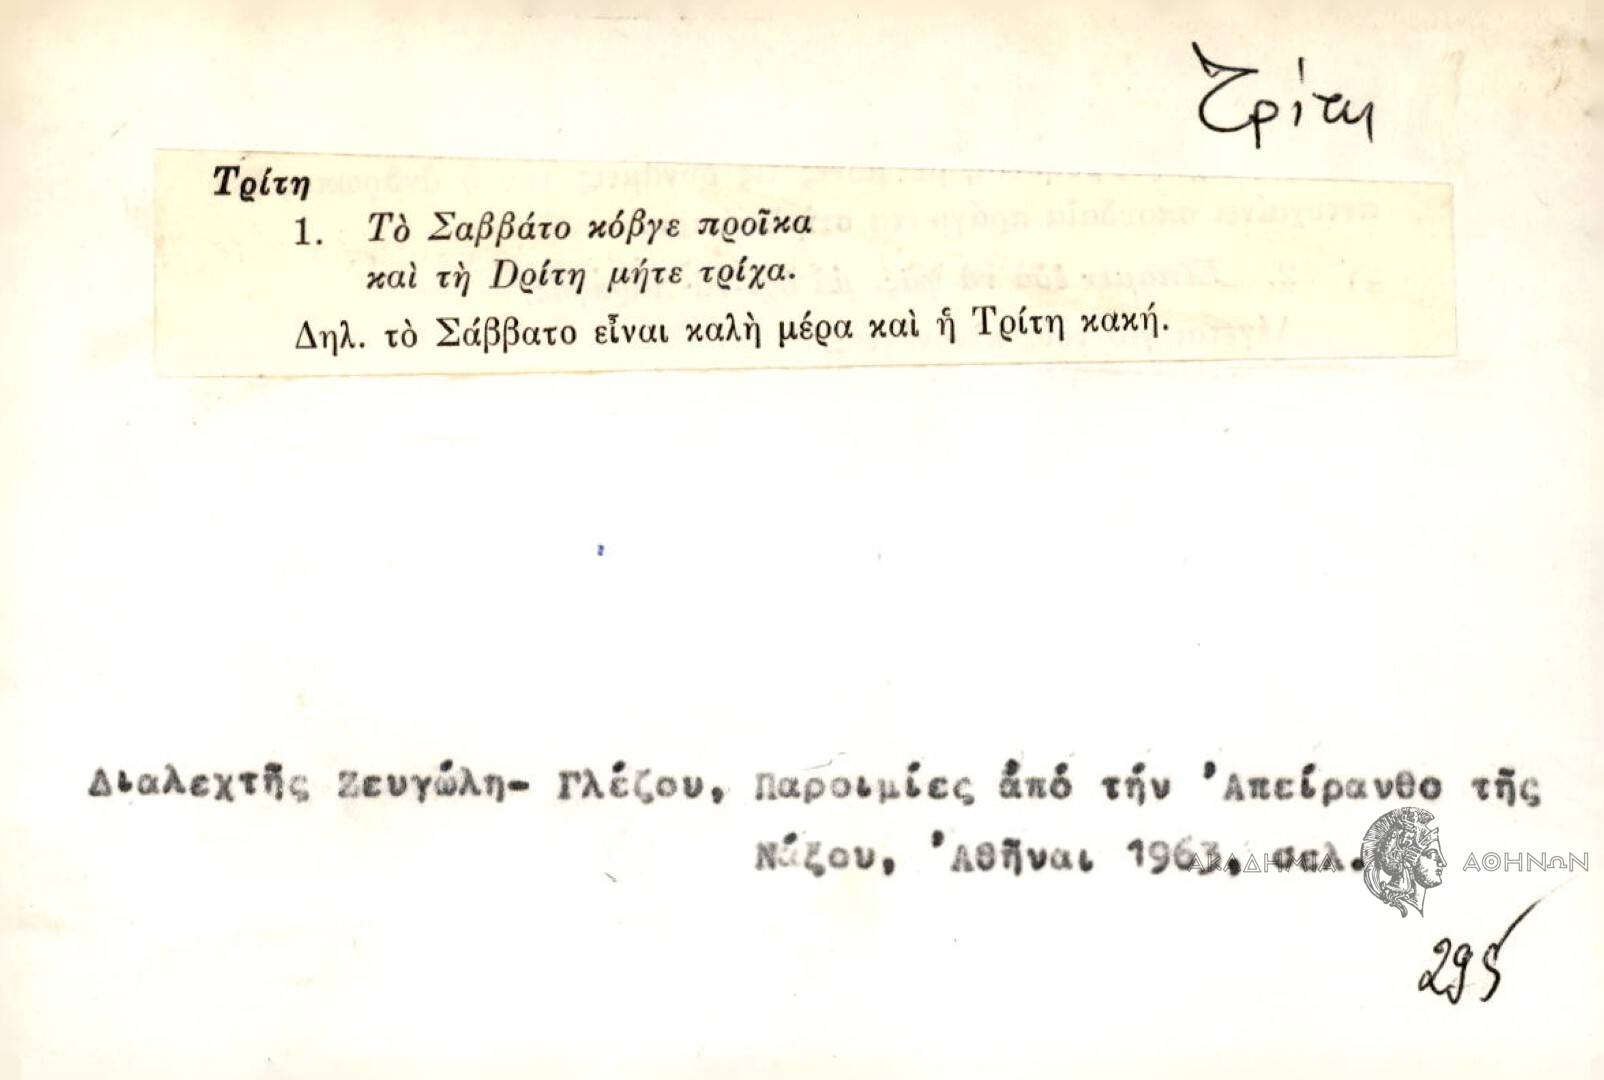 Τρίτη
Τρίτη
1. Τὸ Σαββάτο κόβγε προῖκα
καὶ τὴ Dρίτη μήτε τρίχα.
Δηλ. τὸ Σάββατο εἶναι καλὴ μέρα καὶ ἡ Τρίτη κακή.
Διαλεχτῆς Ζευγώλη- Γλέζου, Παροιμίες ἀπό τήν Ἀπείρανθο τῆς
Νάξου, Ἀθῆναι 1963, σελ.
ΑΚΑΔΗΜΙΑ ΑΘΗΝΩΝ
295